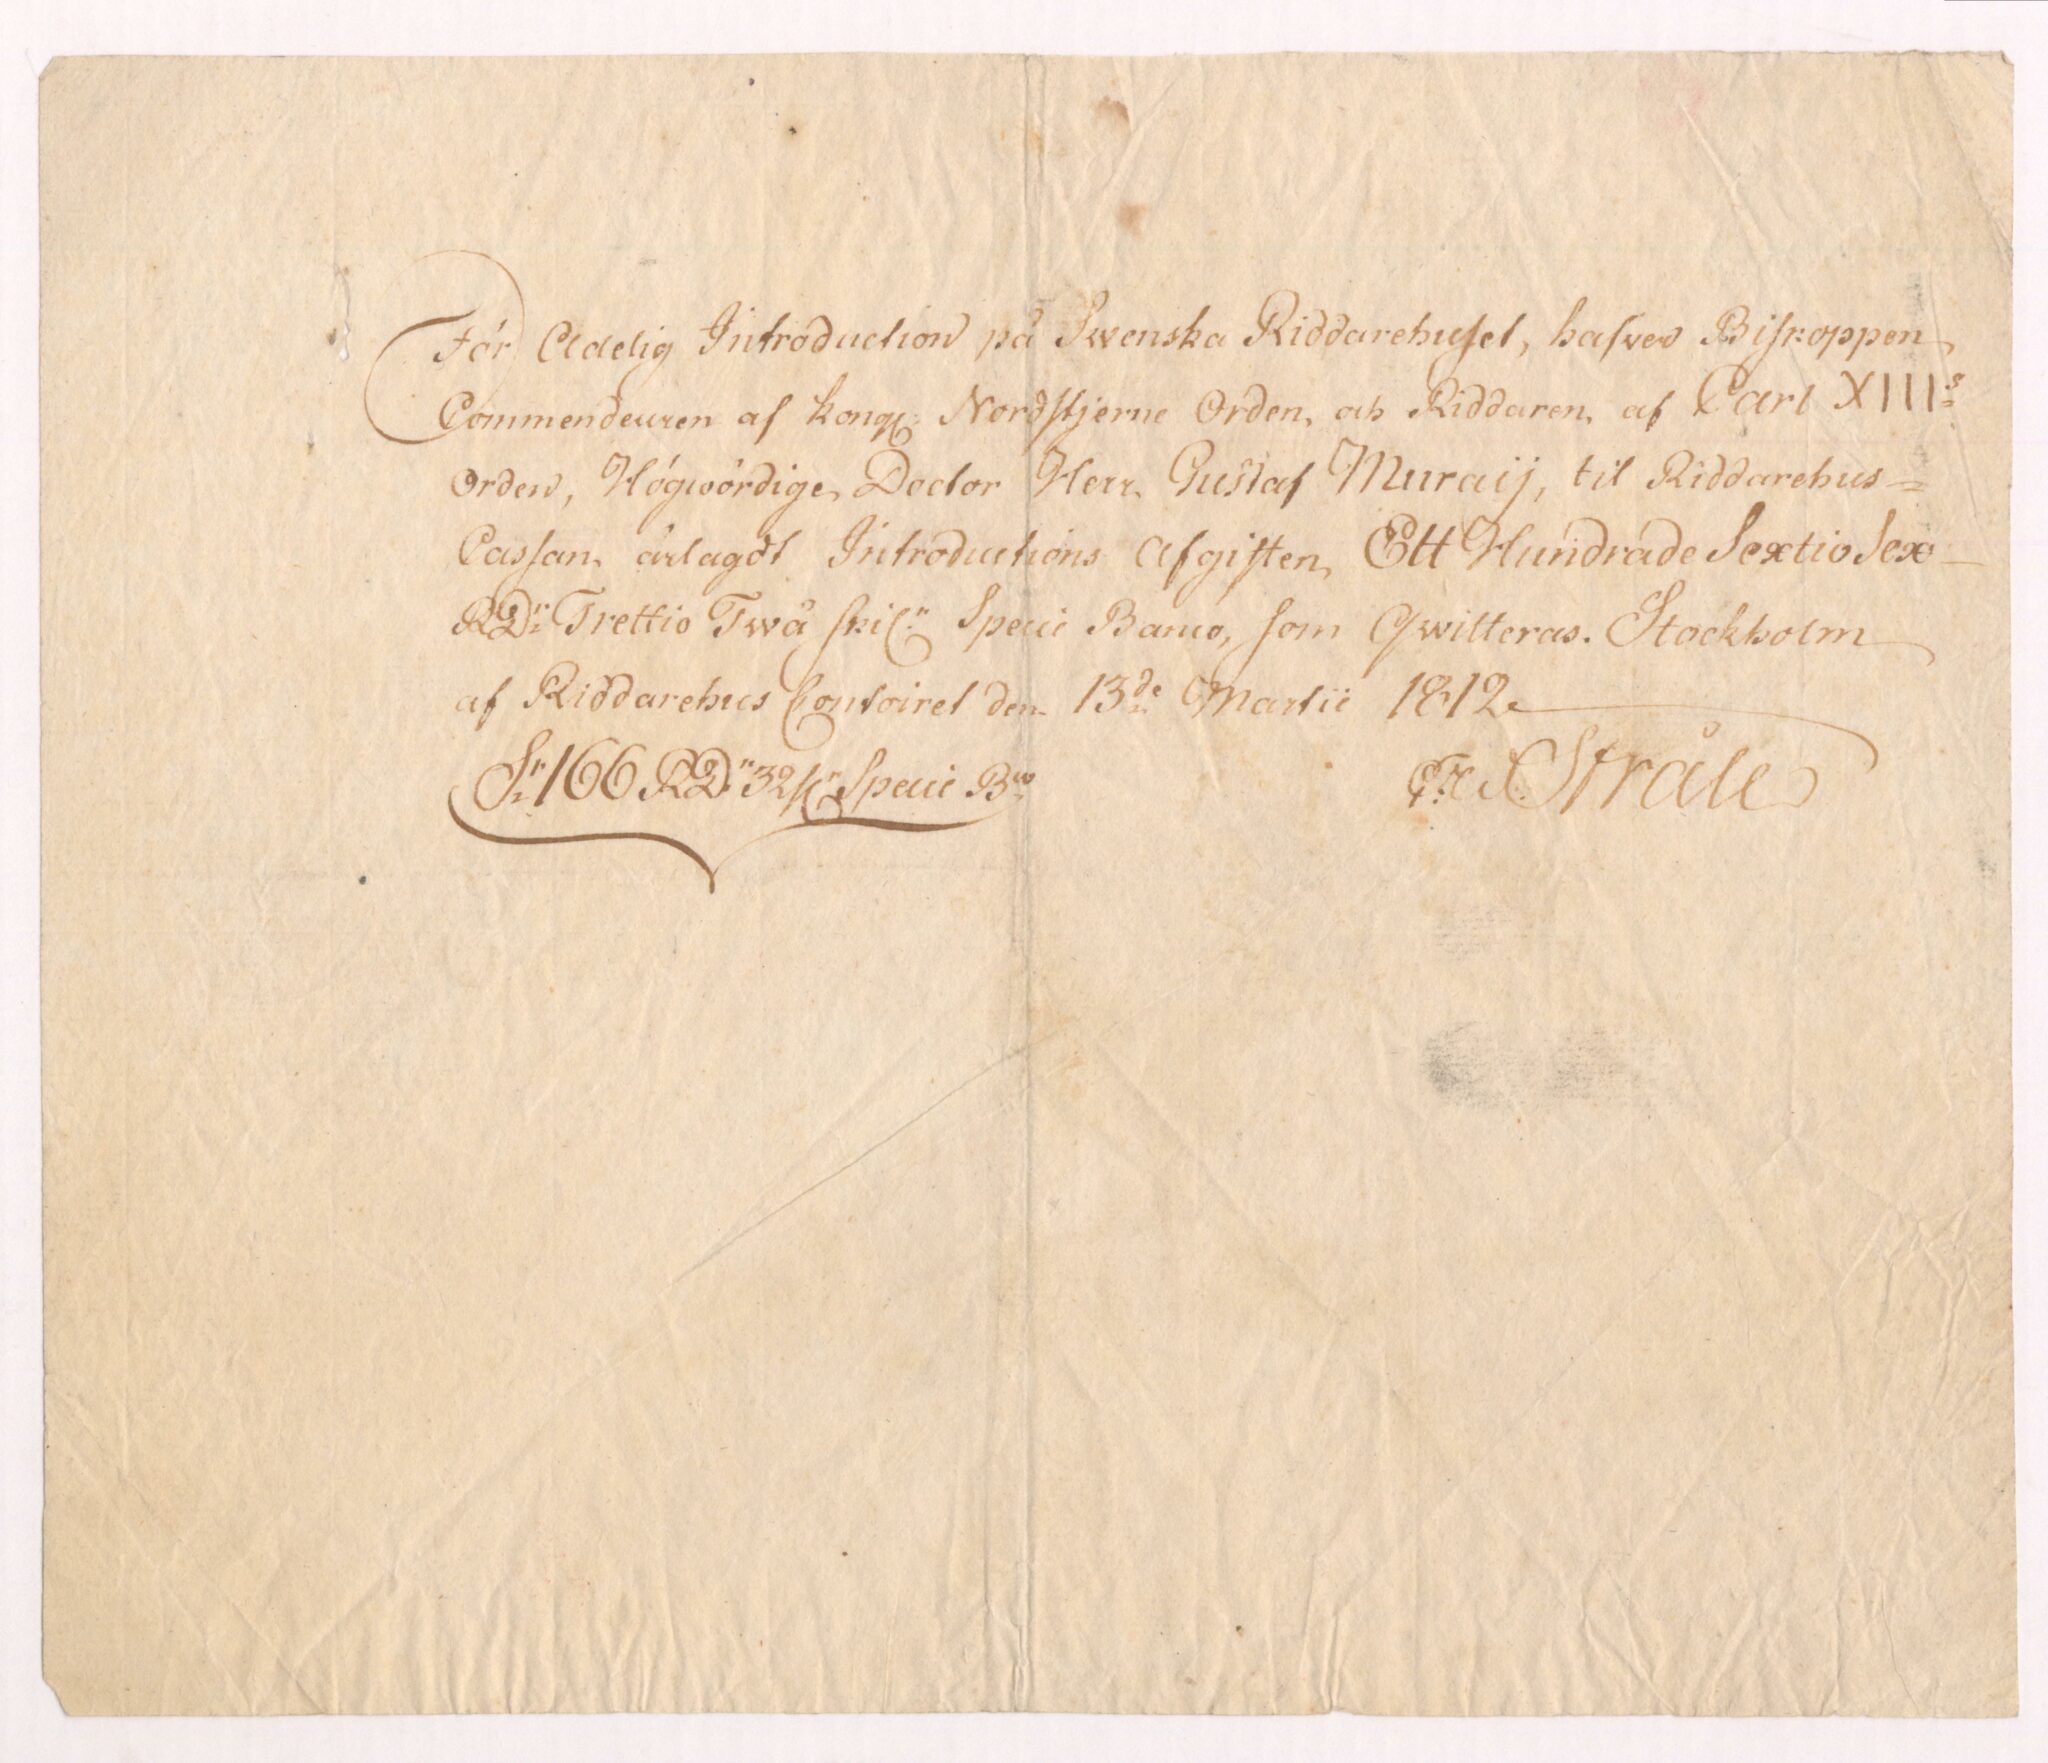 För Adelig Introduction på Swenska Riddarehuset, hafver Biskoppen
Commendeuren af Kongl. Nordstjerne Orden, och Riddaren af Carl XIII:s
Orden, Högwördige Doctor Herr Gustaf Muraij, til Riddarehus=
Cassan erlagdt Introductions Afgiften, Ett Hundrade Sextio Sex
RDr Trettio Twå skil:r Specie Banco, som Qwitteras. Stockholm
af Riddarehus Contoiret den 13:de Martii 1812.
S:r 166 RD:r 32 sk:r Specie B:co
Stråle